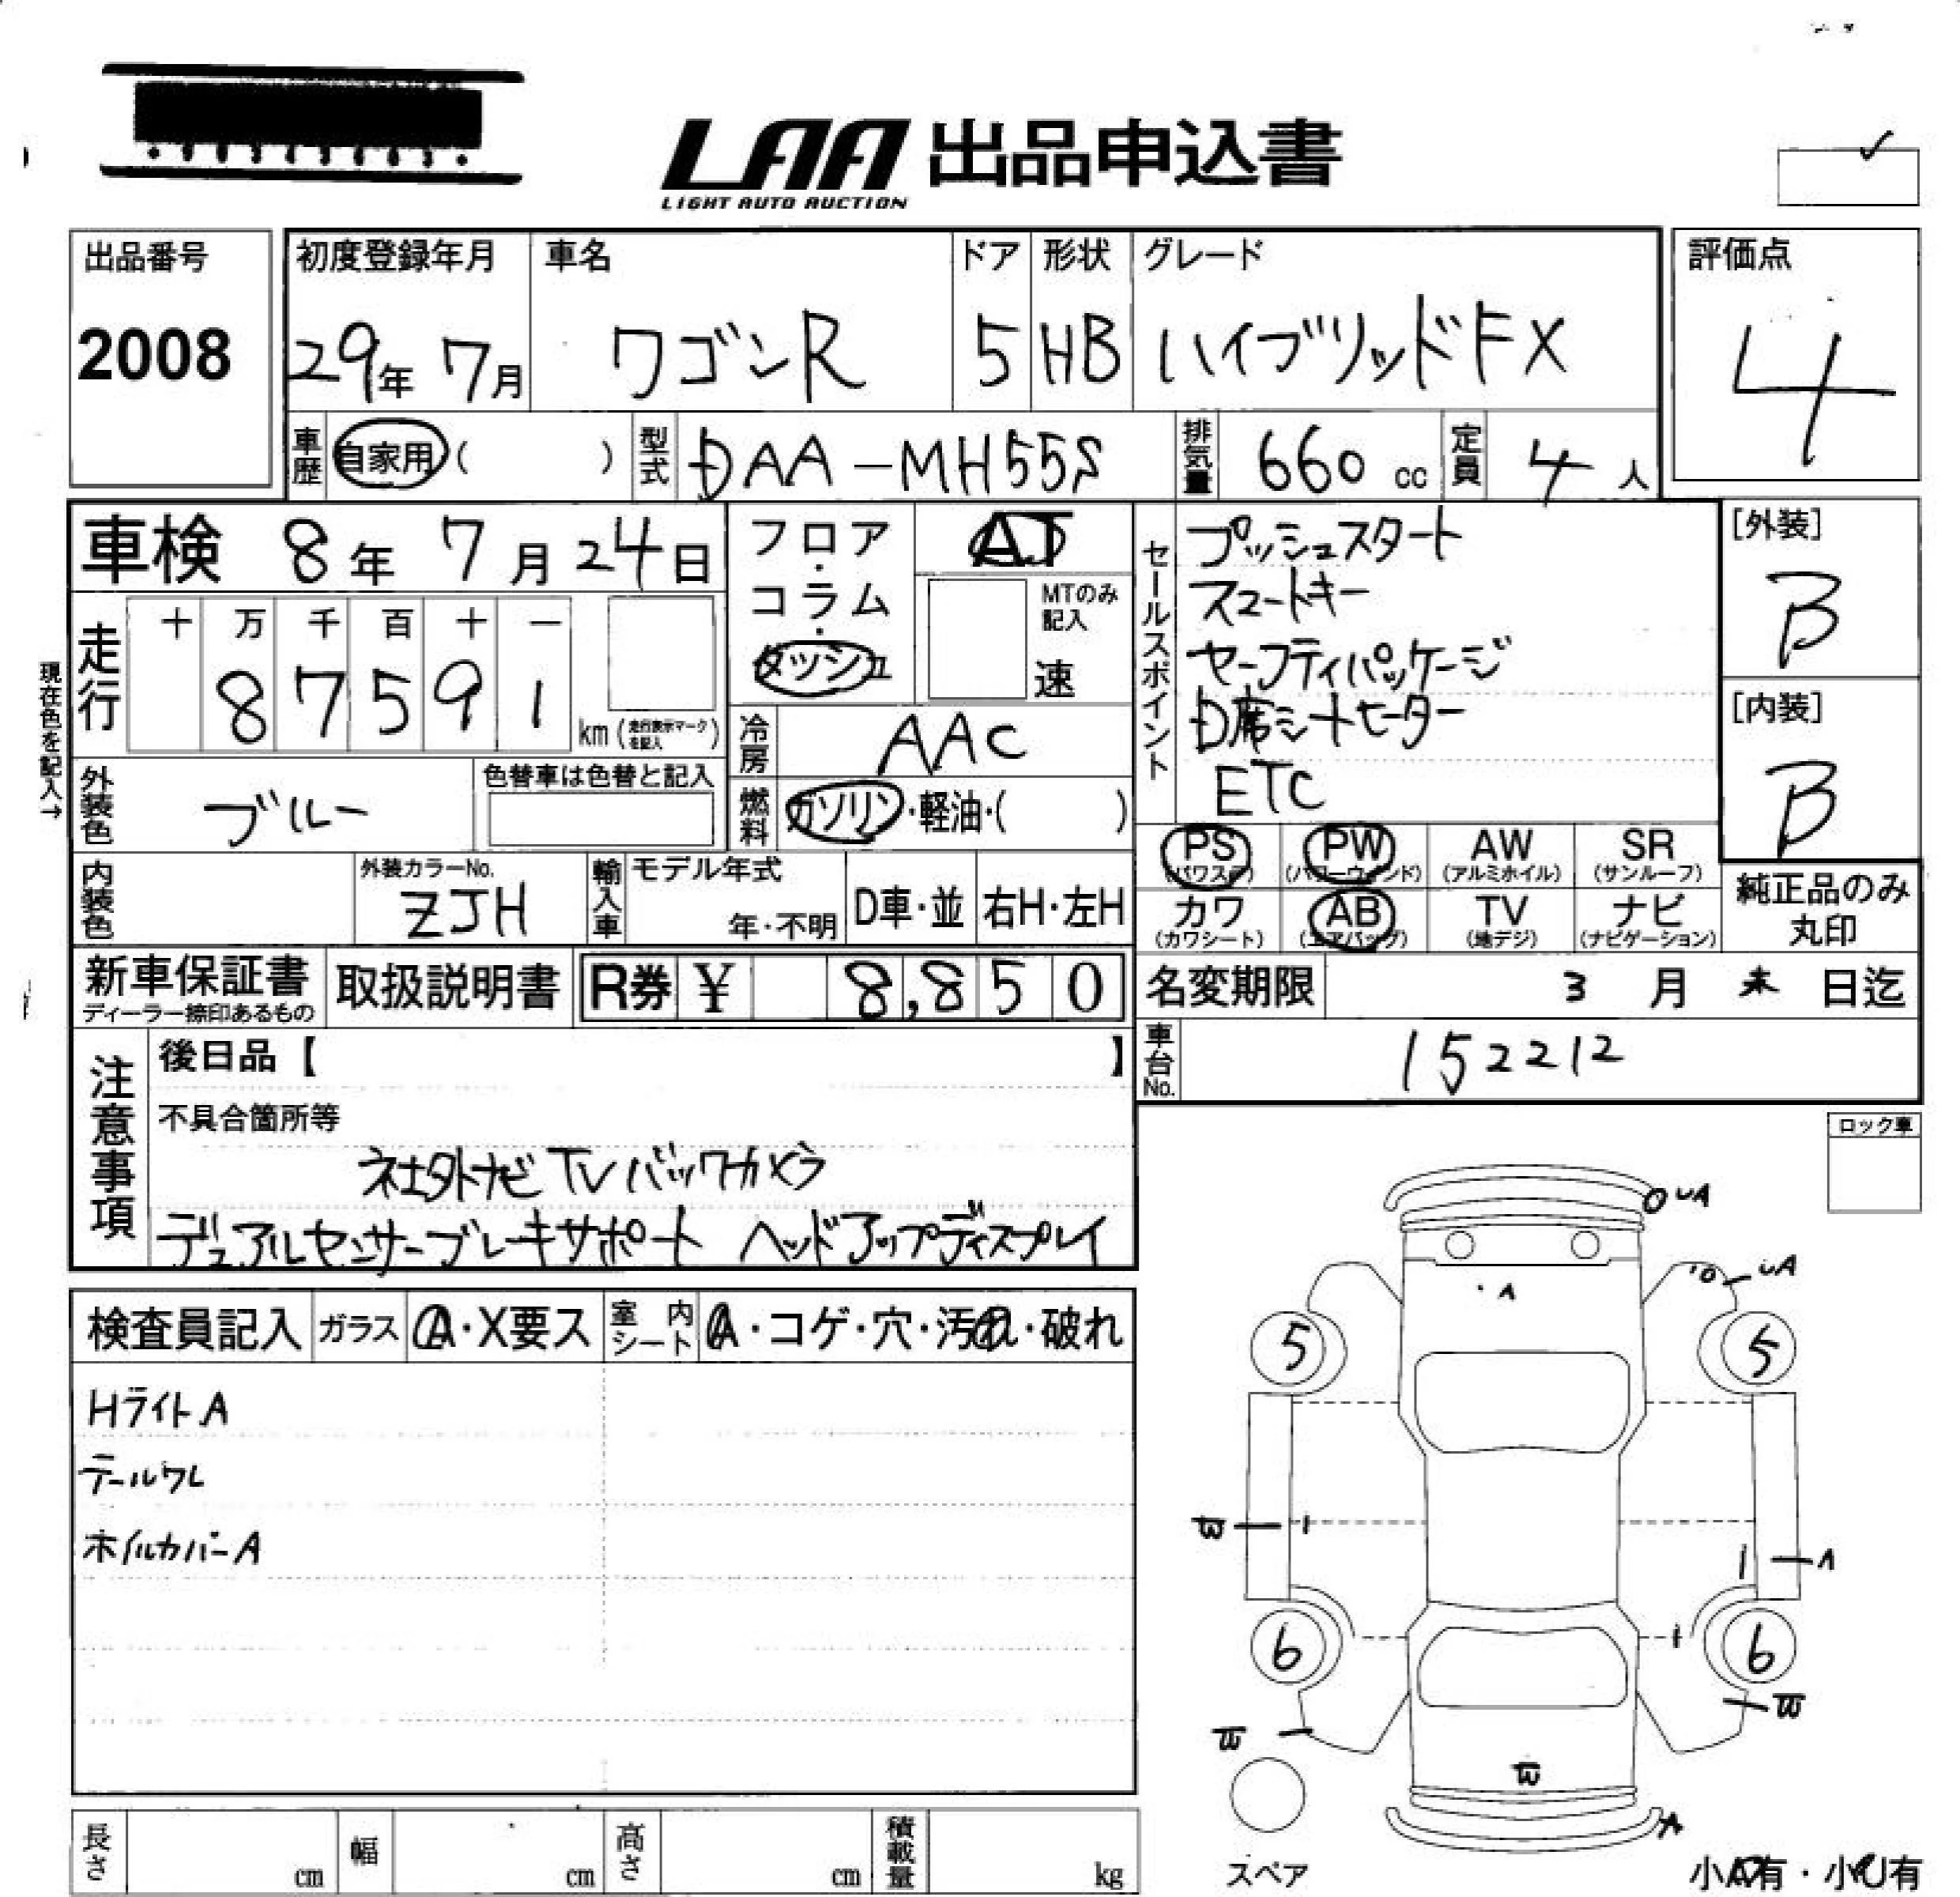 LAA 出品申込書
LIGHT AUTO AUCTION
出品番号
2008
初度登録年月 車名 ドア 形状 グレード
29年 7月 ワゴンR 5 HB ハイブリッドFX
評価点
4
車歴 自家用( ) 型式 DAA-MH55S 排気量 660 cc 定員 4 人
車検 8年 7月 24日
現在色を記入→
走行 十 万 千 百 十 一
87591 km (走行表示マークを記入)
外装色 ブルー 色替車は色替と記入
内装色 外装カラーNo. ZJH
輸入車 モデル年式 年・不明 D車・並 右H・左H
フロア・コラム・ダッシュ
AT
MTのみ記入
速
冷房 AAC
燃料 ガソリン・軽油・( )
セールスポイント
プッシュスタート
スマートキー
セーフティパッケージ
D席シートヒーター
ETC
[外装]
B
[内装]
B
PS (パワステ) PW (パワーウィンド) AW (アルミホイル) SR (サンルーフ)
カワ (カワシート) AB (エアバッグ) TV (地デジ) ナビ (ナビゲーション)
純正品のみ
丸印
新車保証書 取扱説明書 R券 ¥ 8,850
ディーラー捺印あるもの
名変期限 3 月 末 日迄
車台No. 152212
注意事項
後日品【 】
不具合箇所等
社外ナビ TV バックカメラ
デュアルセンサーブレーキサポート ヘッドアップディスプレイ
ロック車
検査員記入 ガラス A・X要ス 室内シート A・コゲ・穴・汚れ・破れ
Hライト A
テールワレ
ホイルカバーA
UA
UA
A
5 5
W
A
6 6
W
W
W
A
スペア
小A有・小U有
長さ cm 幅 cm 高さ cm 積載量 kg